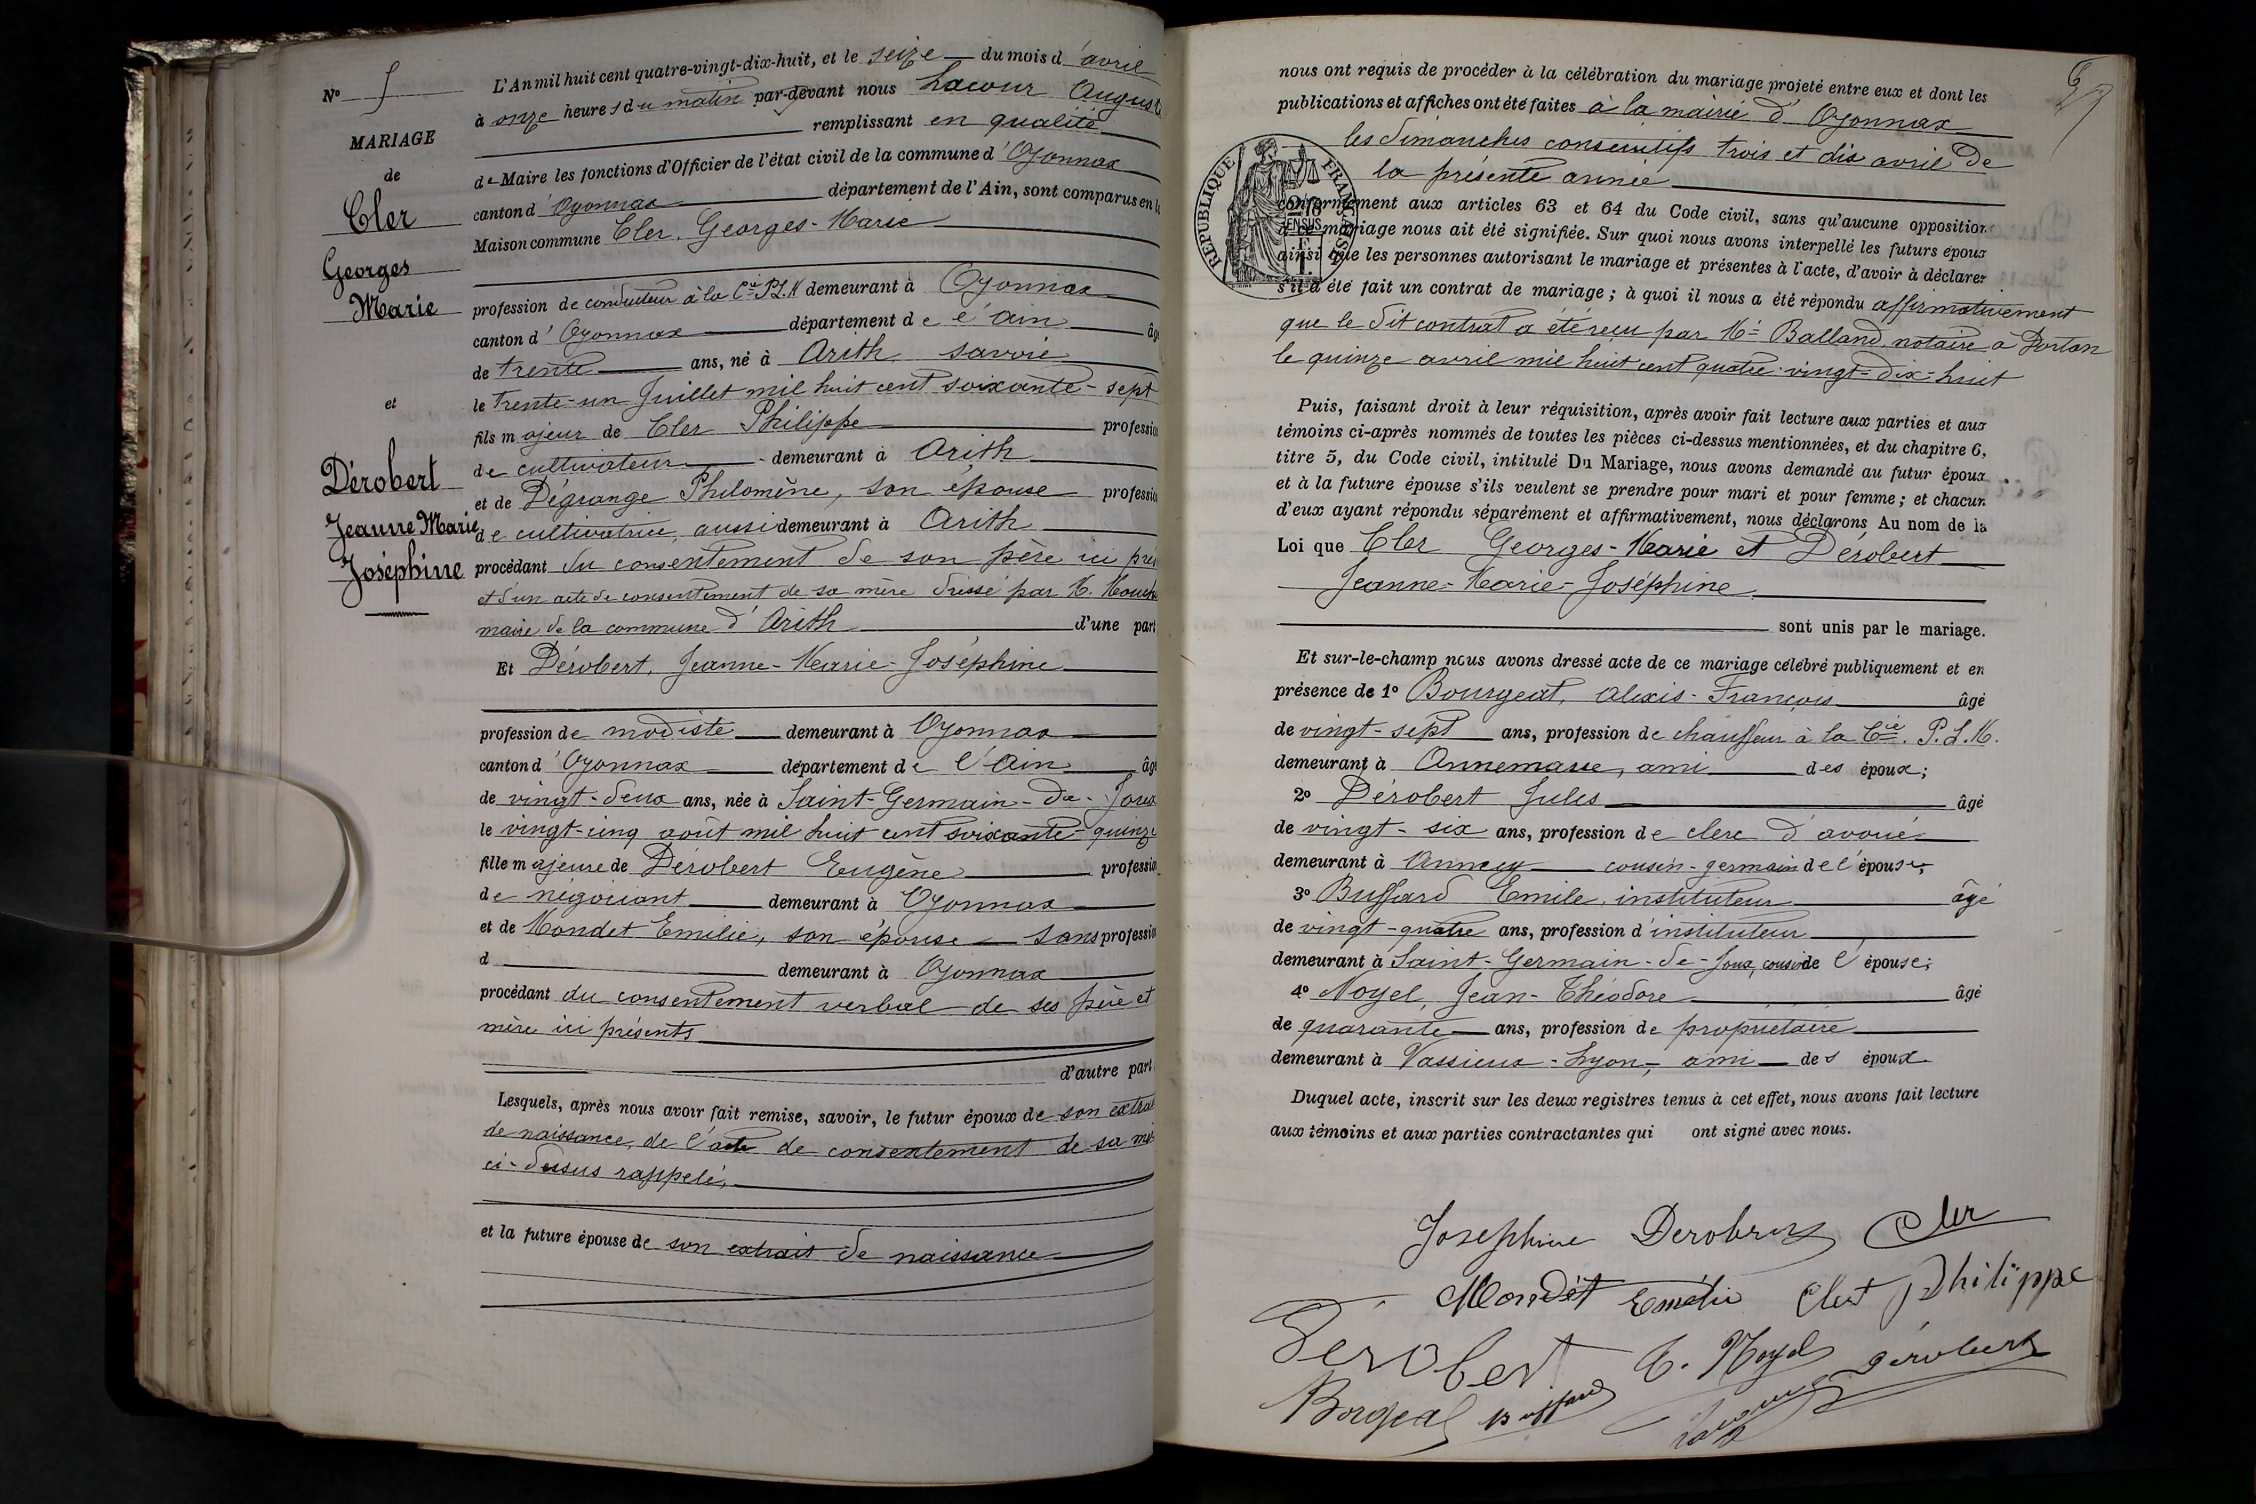 N° 5
MARIAGE
de
Cler
Georges
Marie
et
Dérobert
Jeanne Marie
Joséphine
L'An mil huit cent quatre-vingt-dix-huit, et le seize du mois d'avril
à onze heures du matin par-devant nous Lacour August
remplissant en qualité
de Maire les fonctions d'Officier de l'état civil de la commune d'Oyonnax
canton d'Oyonnax département de l'Ain, sont comparus en la
Maison commune Cler, Georges-Marie
profession de conducteur à la Cie P.L.M demeurant à Oyonnax
canton d'Oyonnax département de l'Ain âgé
de trente ans, né à Arith Savoie
le trente-un Juillet mil huit cent soixante-sept
fils majeur de Cler Philippe profession
de cultivateur demeurant à Arith
et de Dégrange Philomène, son épouse profession
de cultivatrice, aussi demeurant à Arith
procédant du consentement de son père ici prés
et d'un acte de consentement de sa mère dressé par M.
maire de la commune d'Arith d'une part
Et Dérobert, Jeanne-Marie-Joséphine
profession de modiste demeurant à Oyonnax
canton d'Oyonnax département de l'Ain âgé
de vingt-deux ans, née à Saint-Germain-de-Joux
le vingt-cinq août mil huit cent soixante-quinze
fille majeure de Dérobert Eugène profession
de négociant demeurant à Oyonnax
et de Mondet Emélie, son épouse sans profession
d demeurant à Oyonnax
procédant du consentement verbal de ses père et
mère ici présents
d'autre part.
Lesquels, après nous avoir fait remise, savoir, le futur époux de son extrait
de naissance, de l'acte de consentement de sa mè
ci-dessus rappelé,
et la future épouse de son extrait de naissance
nous ont requis de procéder à la célébration du mariage projeté entre eux et dont les
publications et affiches ont été faites à la mairie d'Oyonnax
les dimanches consécutifs trois et dix avril de
la présente année
RÉPUBLIQUE FRANÇAISE
conformément aux articles 63 et 64 du Code civil, sans qu'aucune opposition
à ce mariage nous ait été signifiée. Sur quoi nous avons interpellé les futurs époux
ainsi que les personnes autorisant le mariage et présentes à l'acte, d'avoir à déclarer
s'il a été fait un contrat de mariage ; à quoi il nous a été répondu affirmativement
que le dit contrat a été reçu par Me Balland, notaire à Dortan
le quinze avril mil huit cent quatre-vingt-dix-huit
Puis, faisant droit à leur réquisition, après avoir fait lecture aux parties et aux
témoins ci-après nommés de toutes les pièces ci-dessus mentionnées, et du chapitre 6,
titre 5, du Code civil, intitulé Du Mariage, nous avons demandé au futur époux
et à la future épouse s'ils veulent se prendre pour mari et pour femme ; et chacun
d'eux ayant répondu séparément et affirmativement, nous déclarons Au nom de la
Loi que Cler Georges-Marie et Dérobert
Jeanne-Marie-Joséphine
sont unis par le mariage.
Et sur-le-champ nous avons dressé acte de ce mariage célébré publiquement et en
présence de 1° Bourgeat, Alexis-François âgé
de vingt-sept ans, profession de chauffeur à la Cie. P.L.M.
demeurant à Annemasse, ami des époux ;
2° Dérobert Jules âgé
de vingt-six ans, profession de clerc d'avoué
demeurant à Annecy cousin-germain de l'épouse ;
3° Buffard Emile, instituteur âgé
de vingt-quatre ans, profession d'instituteur
demeurant à Saint-Germain-de-Joux, cousin de l'épouse ;
4° Noyel, Jean-Théodore âgé
de quarante ans, profession de propriétaire
demeurant à Vassieux-Lyon, ami des époux
Duquel acte, inscrit sur les deux registres tenus à cet effet, nous avons fait lecture
aux témoins et aux parties contractantes qui ont signé avec nous.
Josephine Derobert Cler
Mondét Emélie Clert Philippe
Dérobert T. Noyel Dérobert
Borgeat Buffard